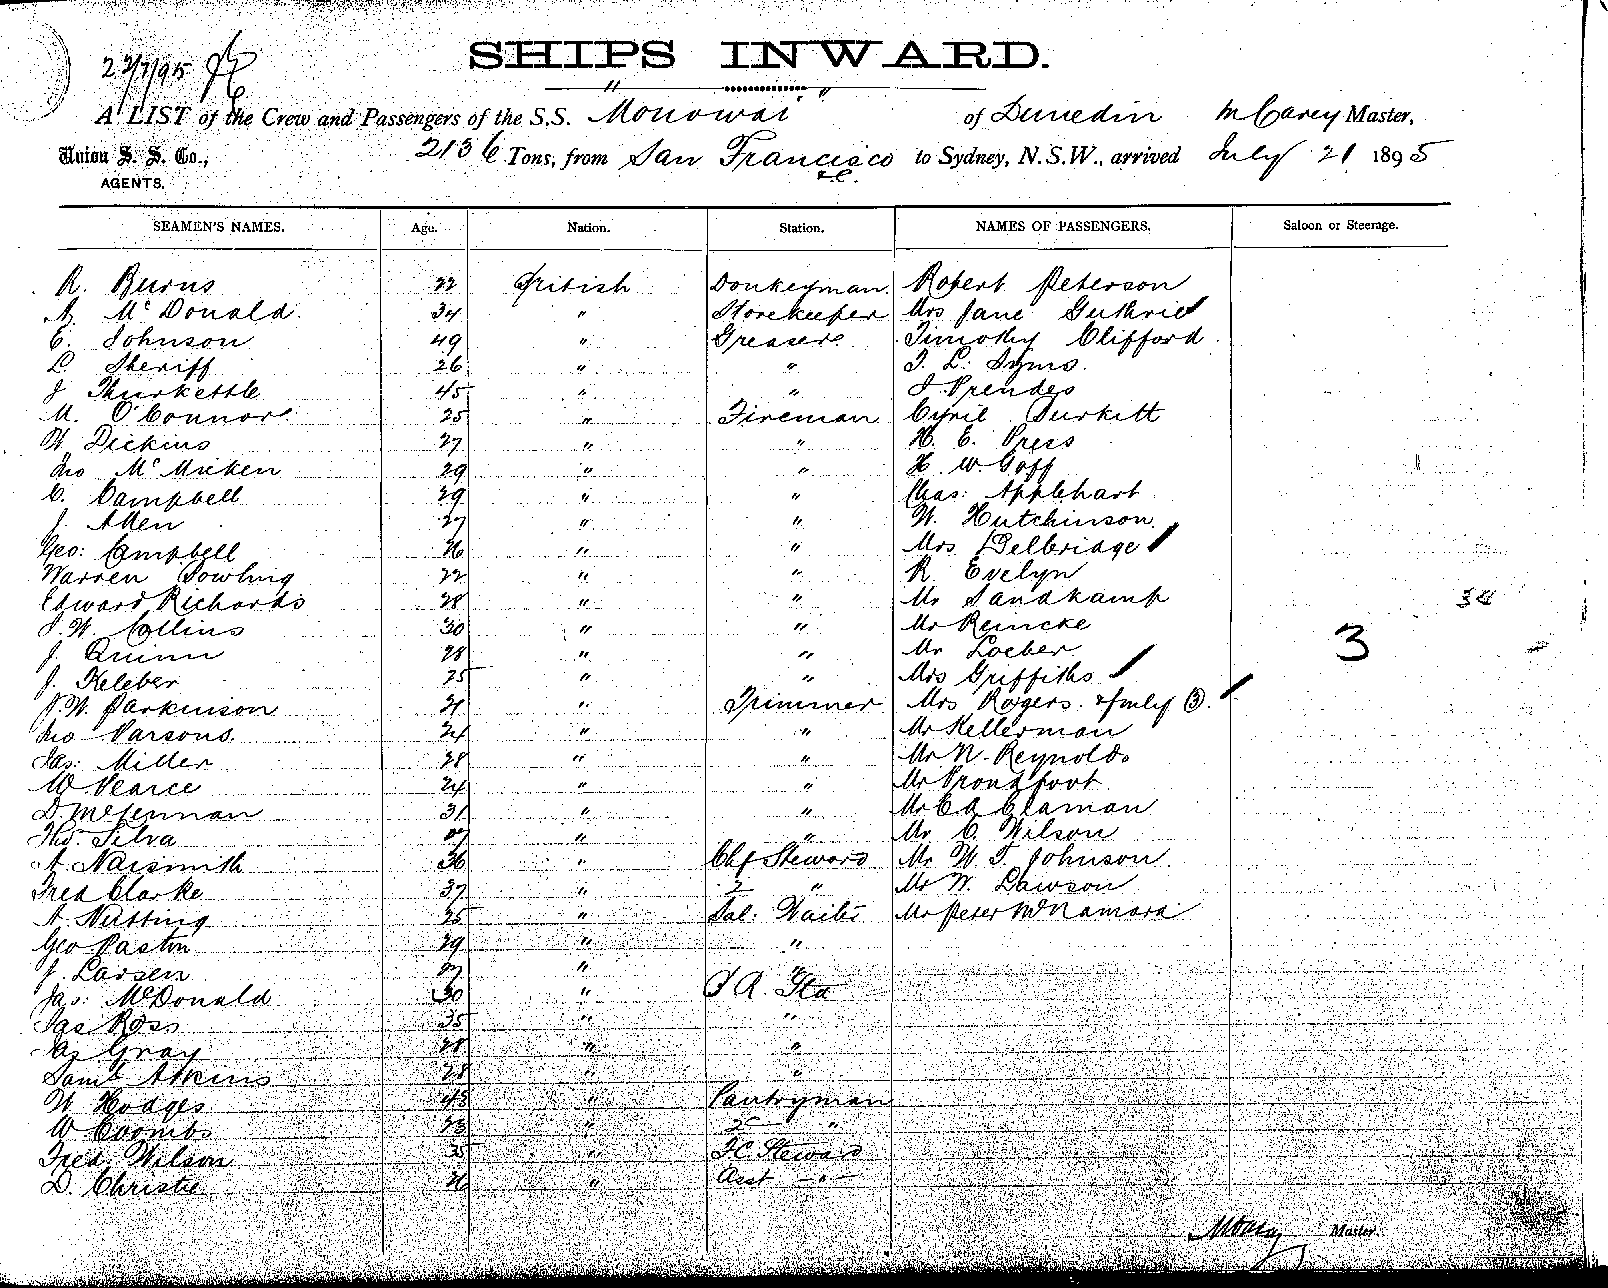 22/7/95
SHIPS INWARD.
A LIST of the Crew and Passengers of the S.S. "Monowai" of Dunedin M Carey Master,
Union S. S. Co., 2136 Tons, from San Francisco &c. to Sydney, N.S.W., arrived July 21 1895
AGENTS.
SEAMEN'S NAMES. Age. Nation. Station. NAMES OF PASSENGERS. Saloon or Steerage.
R. Burns 22 British Donkeyman Robert Peterson
A. McDonald 34 " Storekeeper Mrs Jane Guthrie
C. Johnson 49 " Greasers Timothy Clifford
L. Sheriff 26 " " T. L. Syms
J Thurkettle 45 " " J. Prendes
M. O'Connor 25 " Fireman Cyril Turkitt
W. Dickins 27 " " H. E. Press
Jno McMicken 29 " " H. W Goff
C. Campbell 29 " " Chas: Applehart
J. Allen 27 " " W. Hutchinson
Geo: Campbell 26 " " Mrs Delbridge
Warren Dowling 22 " " R Evelyn
Edward Richards 28 " " Mr Sandkamp
J. W. Collins 30 " " Mr Reincke
J. Quinn 28 " " Mr Loeber
34
3
J. Keleber 25 " " Mrs Griffiths
J. W. Parkinson 21 " Trimmer Mrs Rogers & fmly (3)
Jno Parsons 24 " " Mr Kellerman
Jas: Miller 28 " " Mr N. Reynolds
W Pearce 24 " " Mr Proudfoot
D. McLennan 31 " " Mr Ed Claman
Thos. Silva 27 " " Mr C. Wilson
A Naismith 36 " Chf Steward Mr W. T. Johnson
Fred Clarke 37 " 2 " Mr W. Dawson
A Nutting 25 " Sal: Waiter Mr Peter McNamara
Geo Paston 29 " "
J. Larsen 27 " "
Jas: McDonald 30 "
Jas Ross 35 " "
Gray 28 " "
Saml Atkins 28 " "
W Hodges 45 " Pantryman
W Coombs 23 " 2 "
Fred Wilson 35 " F.C Steward
D. Christie 26 " Asst "
M Carey Master.